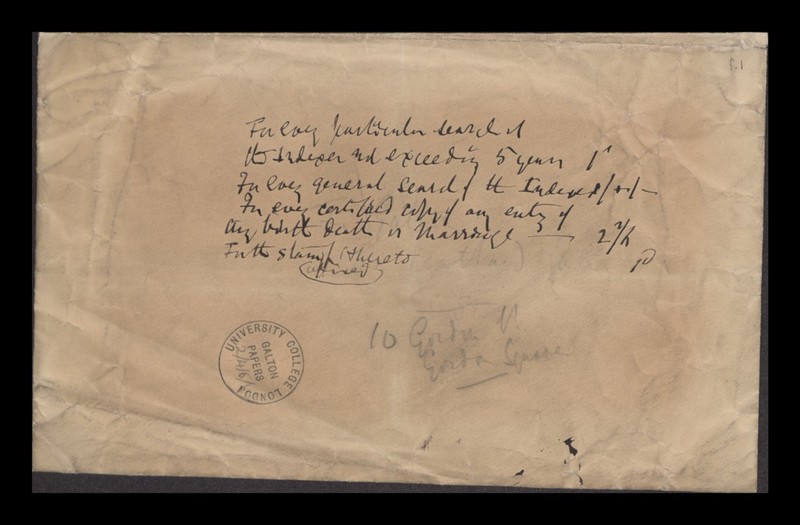 f.1
For every particular search of
the Indexes not exceeding 5 years 1/
For every general search of the Indexes
For every certified copy of any entry of
any birth death or marriage — 2/
For the stamp thereto 1d
(affixed)
10 Gordon St
Gordon Square
UNIVERSITY COLLEGE LONDON
GALTON
PAPERS